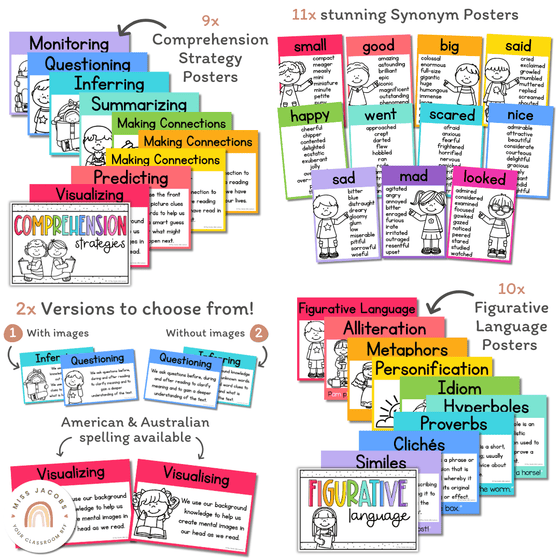 9x
Comprehension
Strategy
Posters
Monitoring
Questioning
Inferring
Summarizing
Making Connections
Making Connections
Making Connections
Predicting
Visualizing
COMPREHENSION
strategies
11x stunning Synonym Posters
small
compact
meager
measly
mini
miniature
minute
petite
good
amazing
astounding
brilliant
epic
iconic
magnificent
outstanding
phenomenal
big
colossal
enormous
full-size
gigantic
huge
humongous
immense
large
said
cried
exclaimed
growled
mumbled
muttered
replied
screamed
shouted
happy
cheerful
chipper
contented
delighted
ecstatic
exuberant
jolly
went
approached
crept
darted
flew
hobbled
ran
scared
afraid
anxious
fearful
frightened
horrified
nervous
panicked
nice
admirable
attractive
beautiful
considerate
courteous
delightful
gracious
sad
bitter
blue
distraught
dreary
gloomy
glum
low
miserable
pitiful
sorrowful
woeful
mad
agitated
angry
annoyed
bitter
enraged
furious
irate
irritated
outraged
resentful
upset
looked
admired
considered
examined
focused
gawked
gazed
noticed
peered
stared
studied
watched
2x Versions to choose from!
1 With images
Without images 2
Questioning
Questioning
We ask questions before,
during and after reading to
clarify meaning and to gain
a deeper understanding of
the text.
We ask questions before,
during and after reading to
clarify meaning and to gain
a deeper understanding of
the text.
Inferring
American & Australian
spelling available
Visualizing
We use our background
knowledge to help us
create mental images in
our head as we read.
Visualising
We use our background
knowledge to help us
create mental images in
our head as we read.
MISS JACOBS
YOUR CLASSROOM BFF
10x
Figurative
Language
Posters
Figurative Language
Alliteration
Metaphors
Personification
Idiom
Hyperboles
Proverbs
Clichés
Similes
FIGURATIVE
language